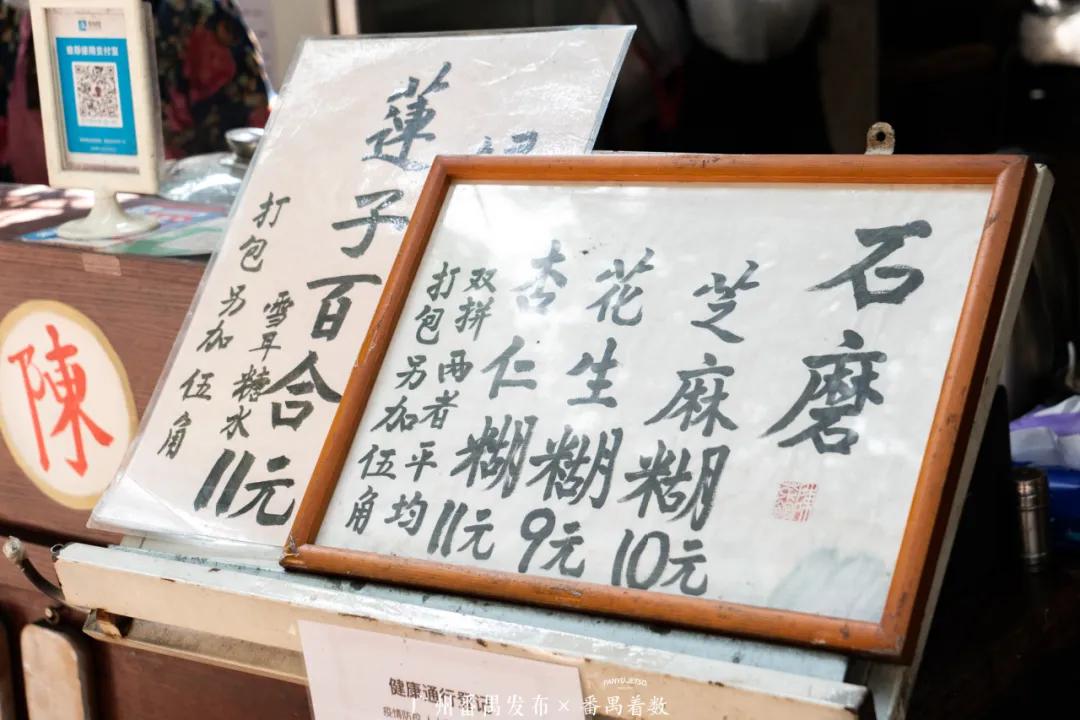 石磨
芝麻糊10元
花生糊9元
杏仁糊11元
双拼两者平均
打包另加伍角
莲子百合
雪耳糖水
11元
打包另加伍角
陳
推荐使用支付宝
健康通行登记
广州番禺发布×番禺着数
PANYU JETSO